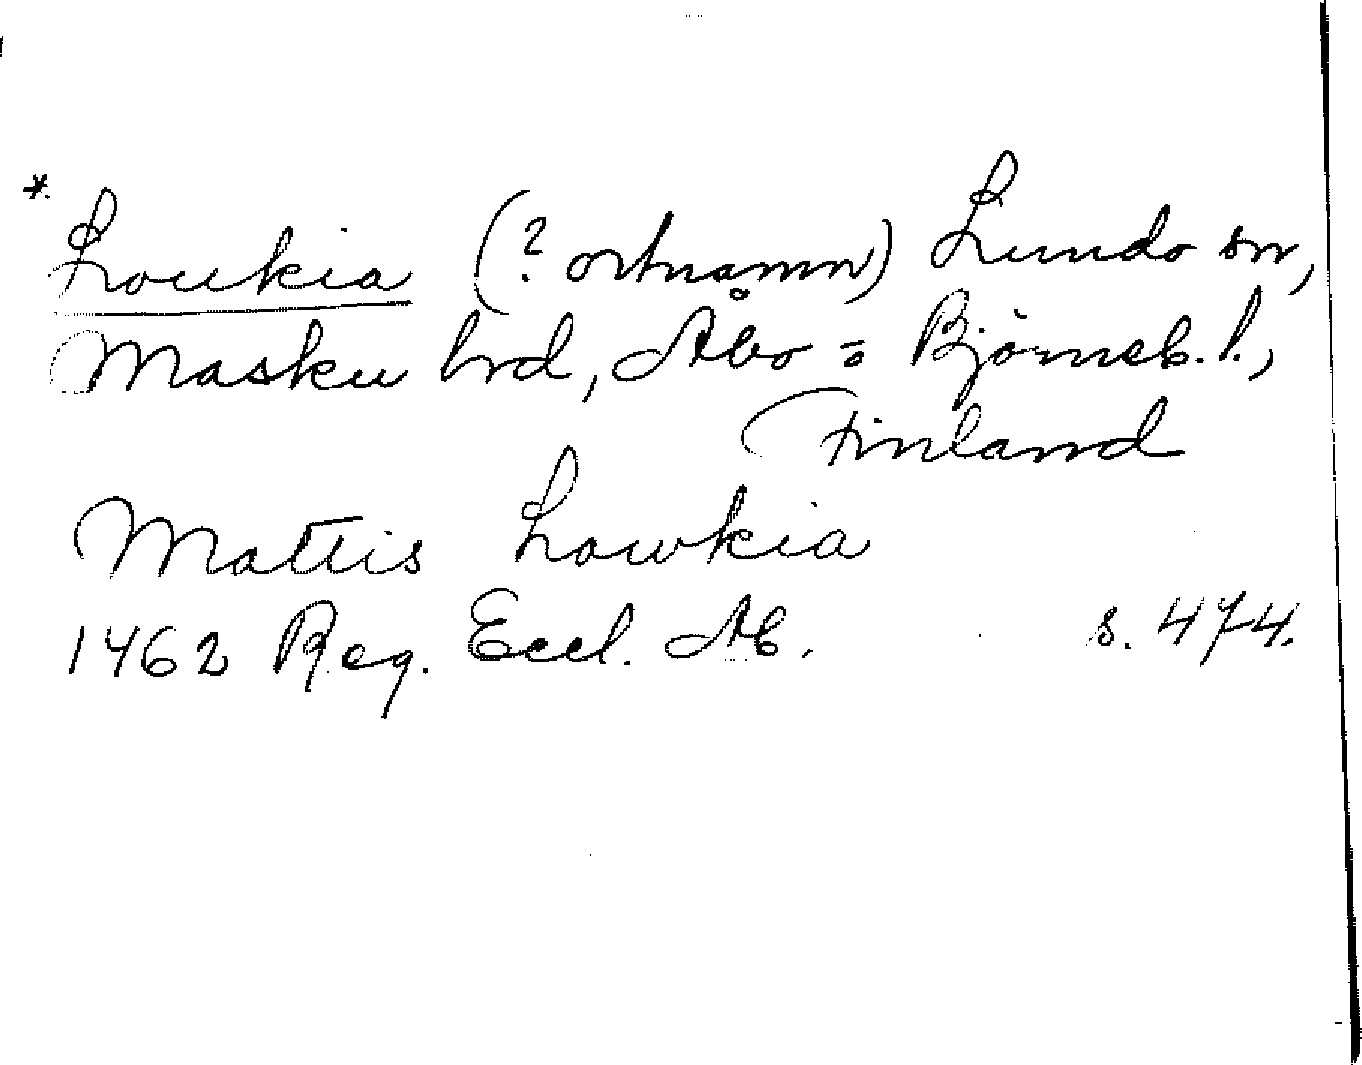 *. Loukia (? ortnamn) Lundo sn,
Masku hrd, Åbo = Björneb. l.,
Finland
Mattis Lowkia
1462 Reg. Eccl. Ab. s. 474.